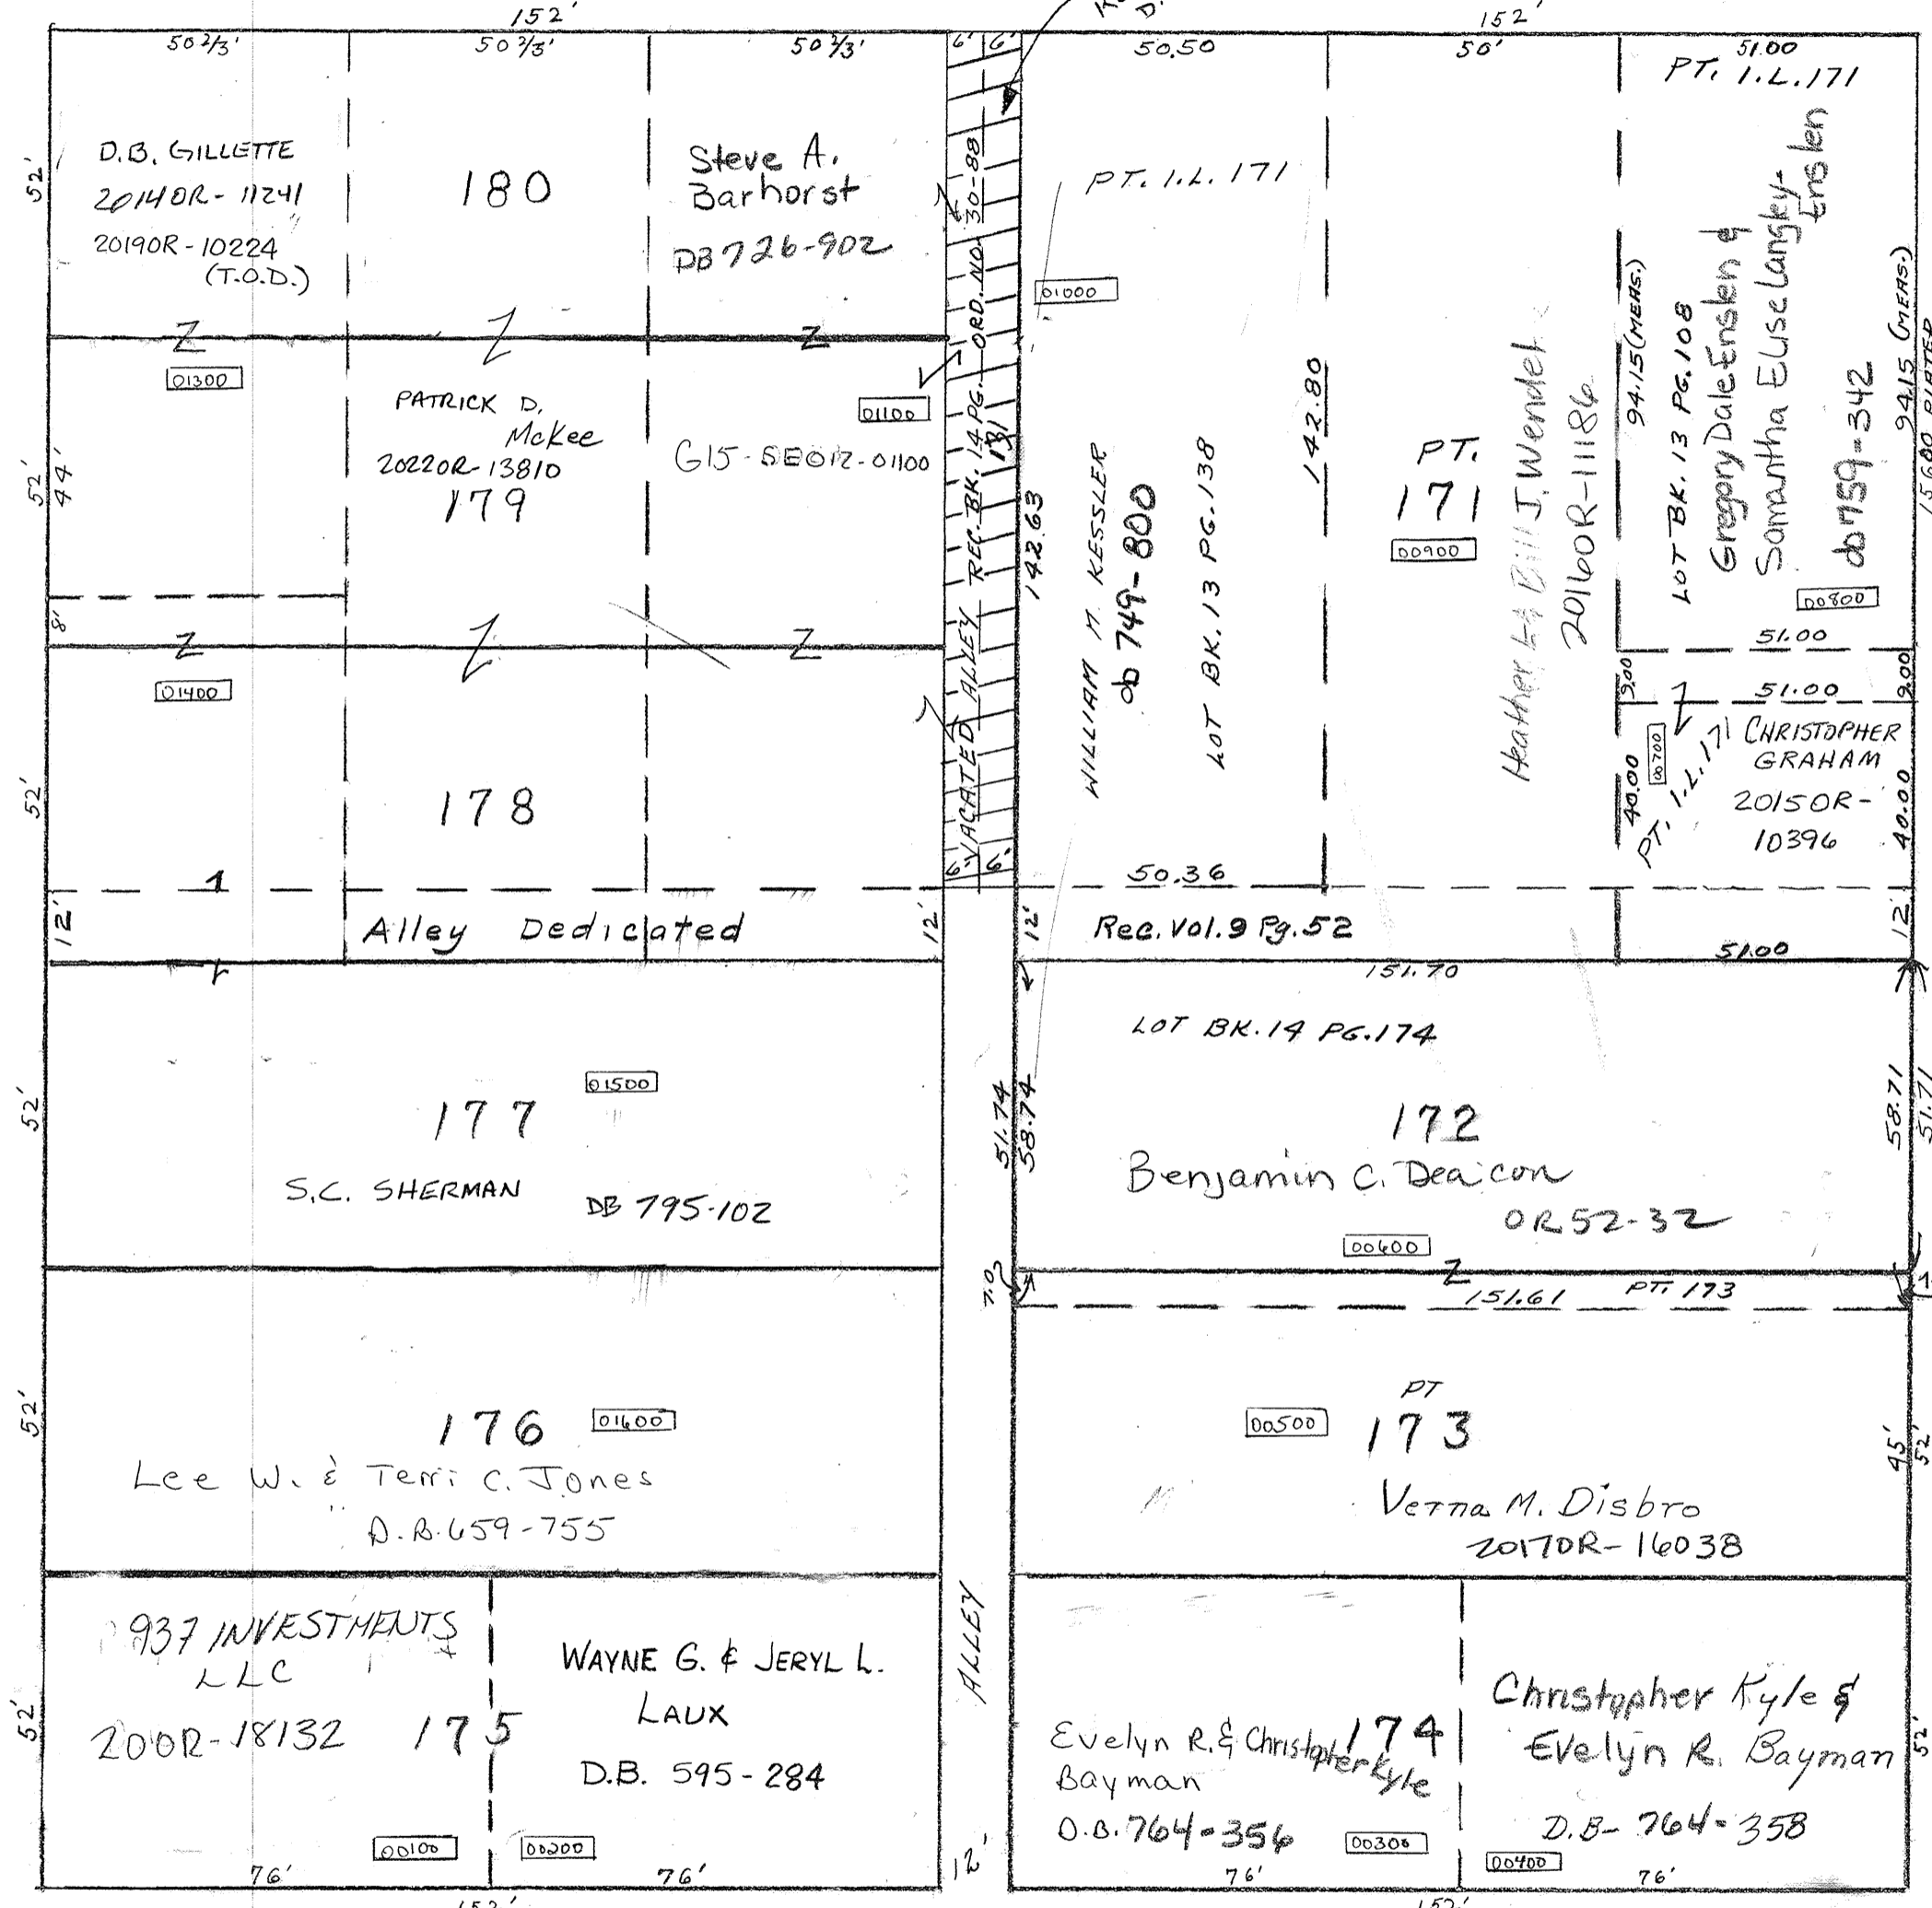 152'
50 2/3'
50 2/3'
50 2/3'
6'
6'
152'
50.50
50'
51.00
PT. I.L. 171
52'
D.B. GILLETTE
2014OR-11241
2019OR-10224
(T.O.D.)
180
Steve A.
Barhorst
DB 726-902
01300
PATRICK D.
McKee
2022OR-13810
179
01100
G15-SE012-01100
52'
44'
8'
01400
178
52'
VACATED ALLEY REC. BK. 14 PG. 131 ORD. NO. 30-88
6'
6'
PT. I.L. 171
01000
142.63
WILLIAM M. KESSLER
db 749-800
LOT BK. 13 PG. 138
142.80
50.36
PT.
171
00900
Bill J. Wendel
2016OR-11186
94.15 (MEAS.)
LOT BK. 13 PG. 108
Gregory Dale Enslen &
Samantha Elise Langley-
Enslen
db 759-342
94.15 (MEAS.)
00800
51.00
9.00
51.00
9.00
00700
40.00
PT. I.L. 171
CHRISTOPHER
GRAHAM
2015OR-
10396
40.00
12'
Alley Dedicated
12'
12'
Rec. Vol. 9 Pg. 52
51.00
12'
151.70
52'
01500
177
S.C. SHERMAN
DB 795-102
51.74
58.74
LOT BK. 14 PG. 174
172
Benjamin C. Deacon
OR 52-32
00600
58.71
51.71
7.0
151.61
PT. 173
52'
176
01600
Lee W. & Terri C. Jones
D.B. 659-755
PT
173
00500
Verna M. Disbro
2017OR-16038
45'
52'
52'
937 INVESTMENTS
LLC
200R-18132
175
WAYNE G. & JERYL L.
LAUX
D.B. 595-284
00100
00200
76'
76'
152'
ALLEY
12'
174
Evelyn R. & Christopher Kyle
Bayman
D.B. 764-356
00300
76'
Christopher Kyle &
Evelyn R. Bayman
D.B- 764-358
00400
76'
52'
152'